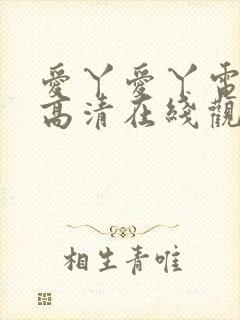 愛丫愛丫電
高清在綫觀
相生青唯